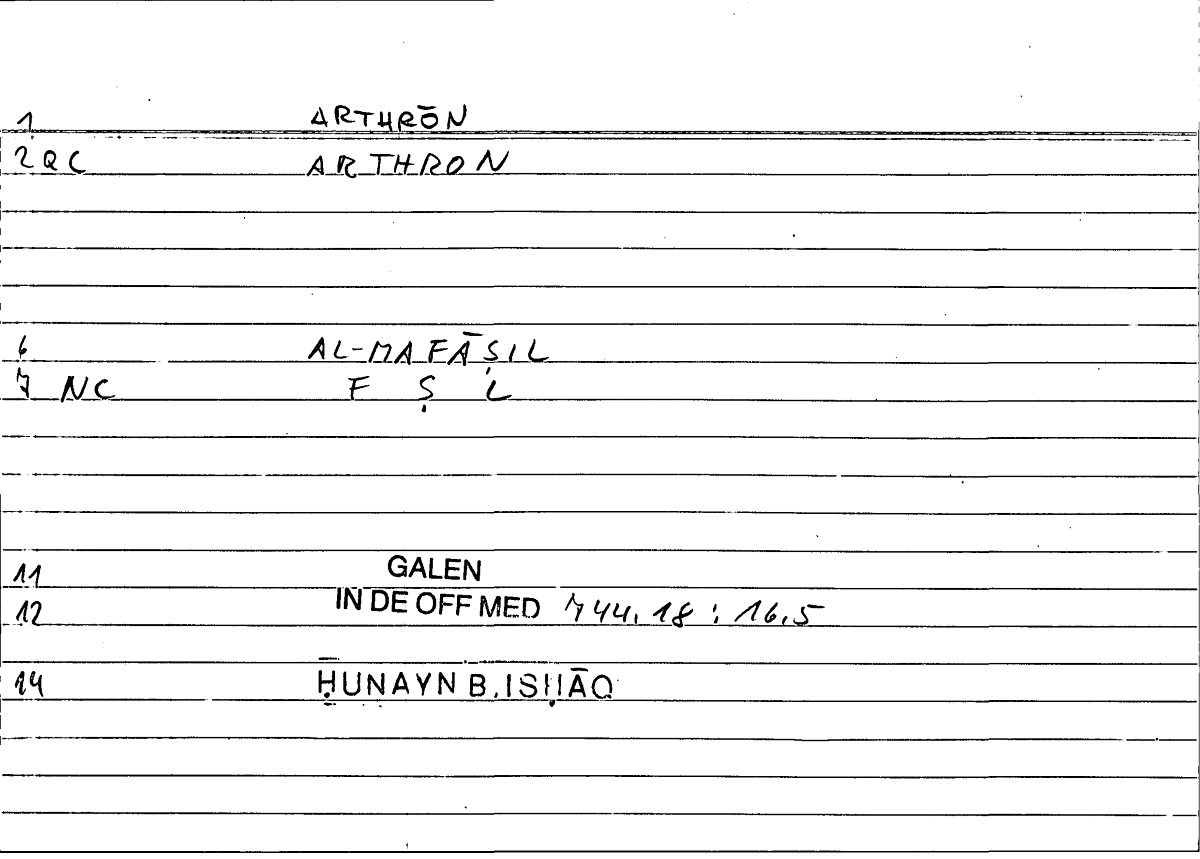 1 ARTHRŌN
2 QC ARTHRON
6 AL-MAFĀṢIL
7 NC F Ṣ L
11 GALEN
12 IN DE OFF MED 744,18 : 16,5
14 ḤUNAYN B. ISḤĀQ